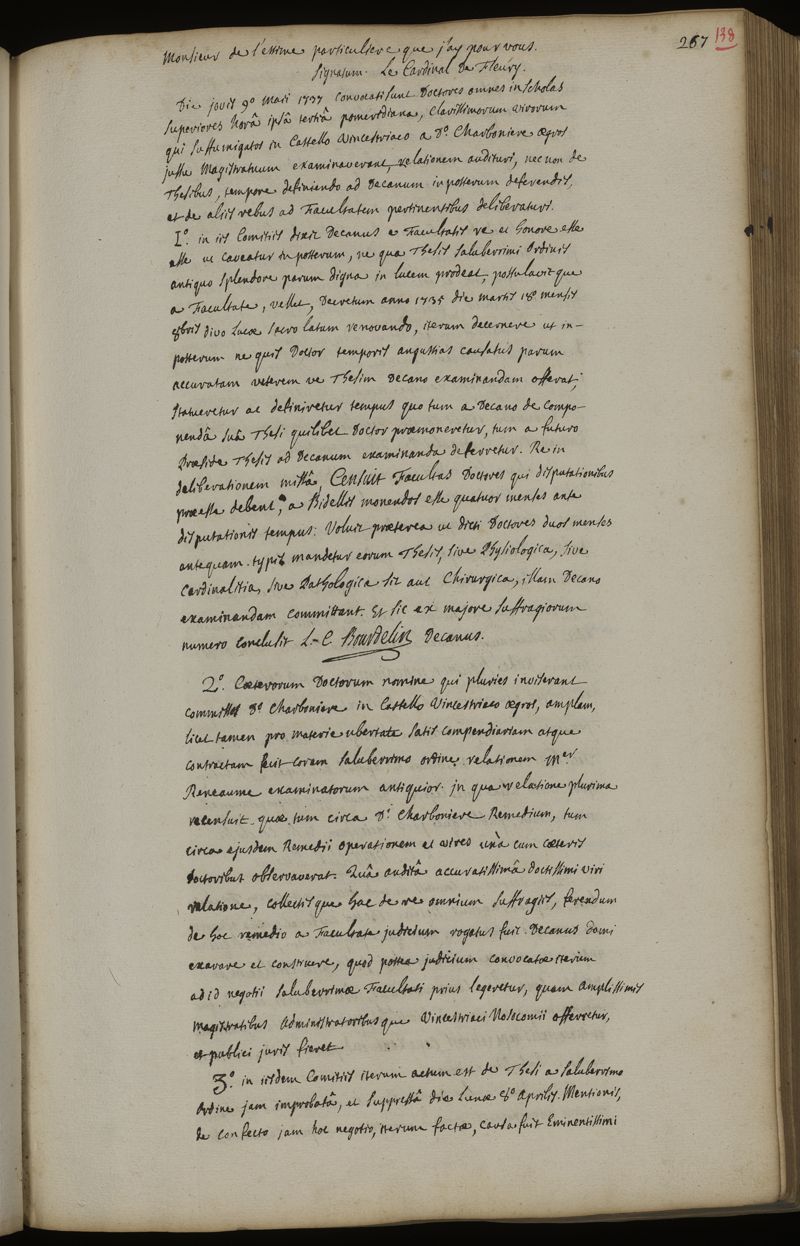 267 138
Monsieur de l'estime particuliere que j'ay pour vous.
Signatum. Le Cardinal De Fleury.
Die jovis 9º Maii 1737 convocati sunt Doctores omnes in scholas
superiores horâ ipsâ tertiâ pomeridianâ, clarissimorum virorum
qui suffumigatos in Castello Vincestriaco a Dº. Charboniere ægros
jussu Magistratuum examinaverant, relationem audituri, nec non de
Thesibus, tempore definiendo ad Decanum in posterum deferendis,
et de aliis rebus ad Facultatem pertinentibus deliberaturi.
1º. in iis Comitiis dixit Decanus e Facultatis re et honore esse
esse ut caveatur in posterum, ne qua Thesis saluberrimi Ordinis
antiquo splendore parum digna in lucem prodeat, postulavitque
a Facultate, vellet, Decretum anno 1735 die martis 18º mensis
8bris divo Lucæ sacro latum renovando, iterum decernere ut in-
posterum ne quis Doctor temporis angustias causatus parum
accuratam veterem ve Thesim Decano examinandam offerat,
statueretur ac definiretur tempus quo tum a Decano de compo-
nendâ suâ Thesi quilibet Doctor præmoneretur, tum a futuro
Præside Thesis ad Decanum examinanda deferretur. Re in
deliberationem missâ, Censuit Facultas Doctores qui disputationibus
præesse debent, a Bidellis monendos esse quatuor menses ante
disputationis tempus: Voluit præterea ut dicti Doctores duos menses
antequam typis mandetur eorum Thesis, sive Physiologica, sive
Cardinalitia, sive Pathologica sit aut Chirurgica, illam Decano
examinandam committant. Et sic ex majore suffragiorum
numero conclusit L.-C. Bourdelin Decanus.
2º. Cæterorum Doctorum nomine qui pluries inviserant
commissos Dº Charboniere in Castello Vincestriaco ægros, amplam,
licet tamen pro materie ubertate satis compendiariam atque
contractam fecit coram saluberrimo ordine relationem Mer
Reneaume examinatorum antiquior. in qua relatione plurima
recensuit quæ tum circa Di Charboniere Remedium, tum
circa ejusdem Remedii operationem et vires unà cum cæteris
Doctoribus observaverat. Quâ auditâ accuratissimâ doctissimi viri
relatione, collectisque hac de re omnium suffragiis, ferendum
de hoc remedio a Facultate judicium rogatus fuit Decanus domi
exarare et construere, quod postea judicium convocatæ iterum
ad id negotii saluberrimæ Facultati prius legeretur, quam Amplissimis
Magistratibus Administratoribusque Vincestriaci Nosocomii offerretur,
et publici juris fieret.
3º. in iisdem Comitiis iterum actum est de Thesi a saluberrimo
Ordine jam improbatâ, et suppressâ die Lunæ Aprilis. Mentionis,
de confecto jam hoc negotio, iterum factæ, causa fuit Eminentissimi